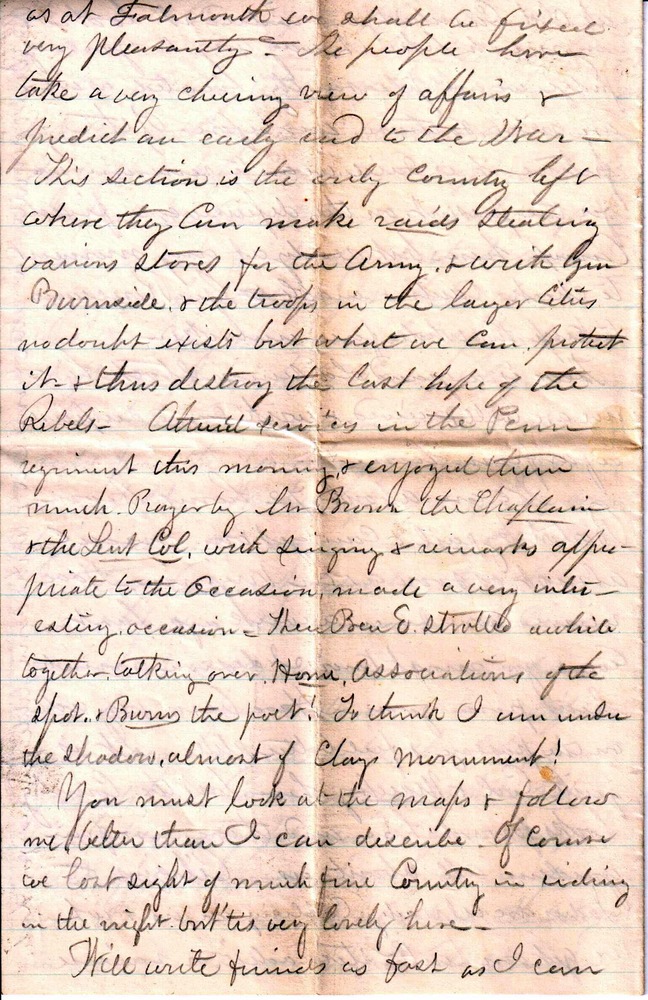 as at Falmouth we shall be fixed
very pleasantly - The people here
take a very cheering view of affairs &
predict an early end to the War -
This section is the only Country left
where they can make raids stealing
various stores for the Army. & with Gen
Burnside. & the troops in the larger Cities
no doubt exists but what we can protect
it - & thus destroy the last hope of the
Rebels - Attend services in the Penn
regiment this morning, & enjoyed them
much. Prayer by Mr Brown the Chaplain
& the Leut Col, with singing & remarks appro-
priate to the Occasion, made a very inter-
esting occasion - Then Ben E. strolled awhile
together, talking over, Home, Associations of the
spot. & Burns the poet! To think I am under
the shadow, almost of Clays monument!
You must look at the maps & follow
me better than I can describe. Of course
we lost sight of much fine Country in riding
in the night. but 'tis very lovely here -
Will write friends as fast as I can